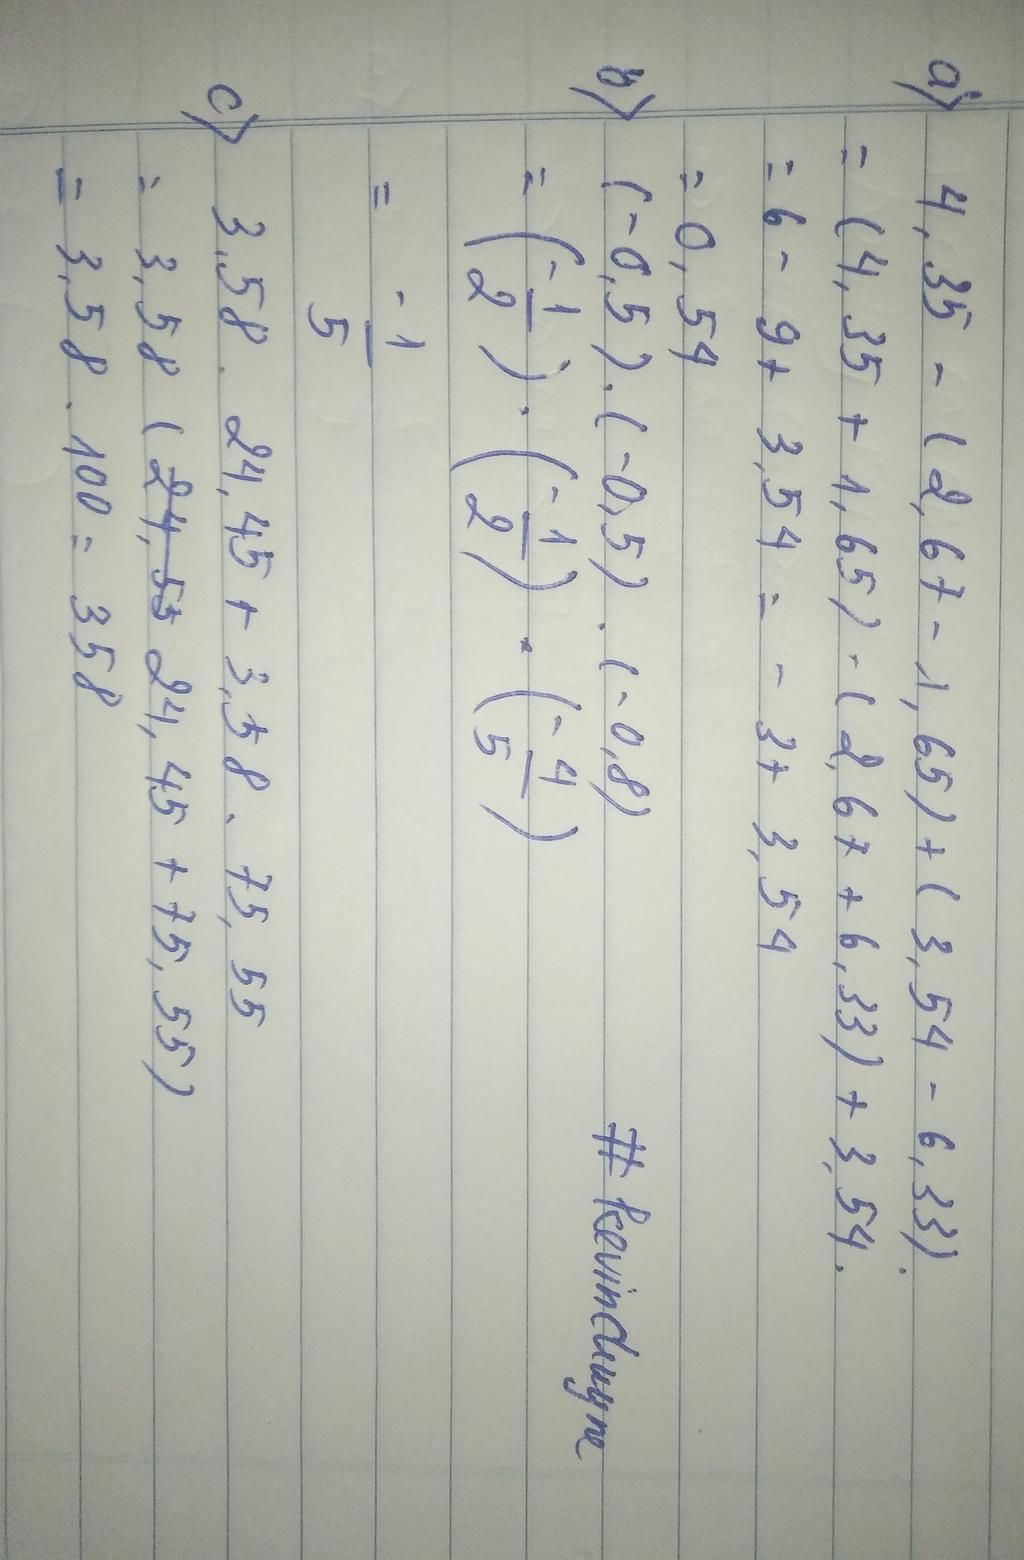 a) 4,35 - (2,67 - 1,65) + (3,54 - 6,33).
= (4,35 + 1,65) - (2,67 + 6,33) + 3,54.
= 6 - 9 + 3,54 = - 3 + 3,54
= 0,54
b) (-0,5).(-0,5).(-0,8)
= (-1/2).(-1/2).(-4/5)
= -1/5
c) 3,58. 24,45 + 3,58. 75,55
= 3,58 (24,55 24,45 + 75,55)
= 3,58.100 = 358
# kevinduyne